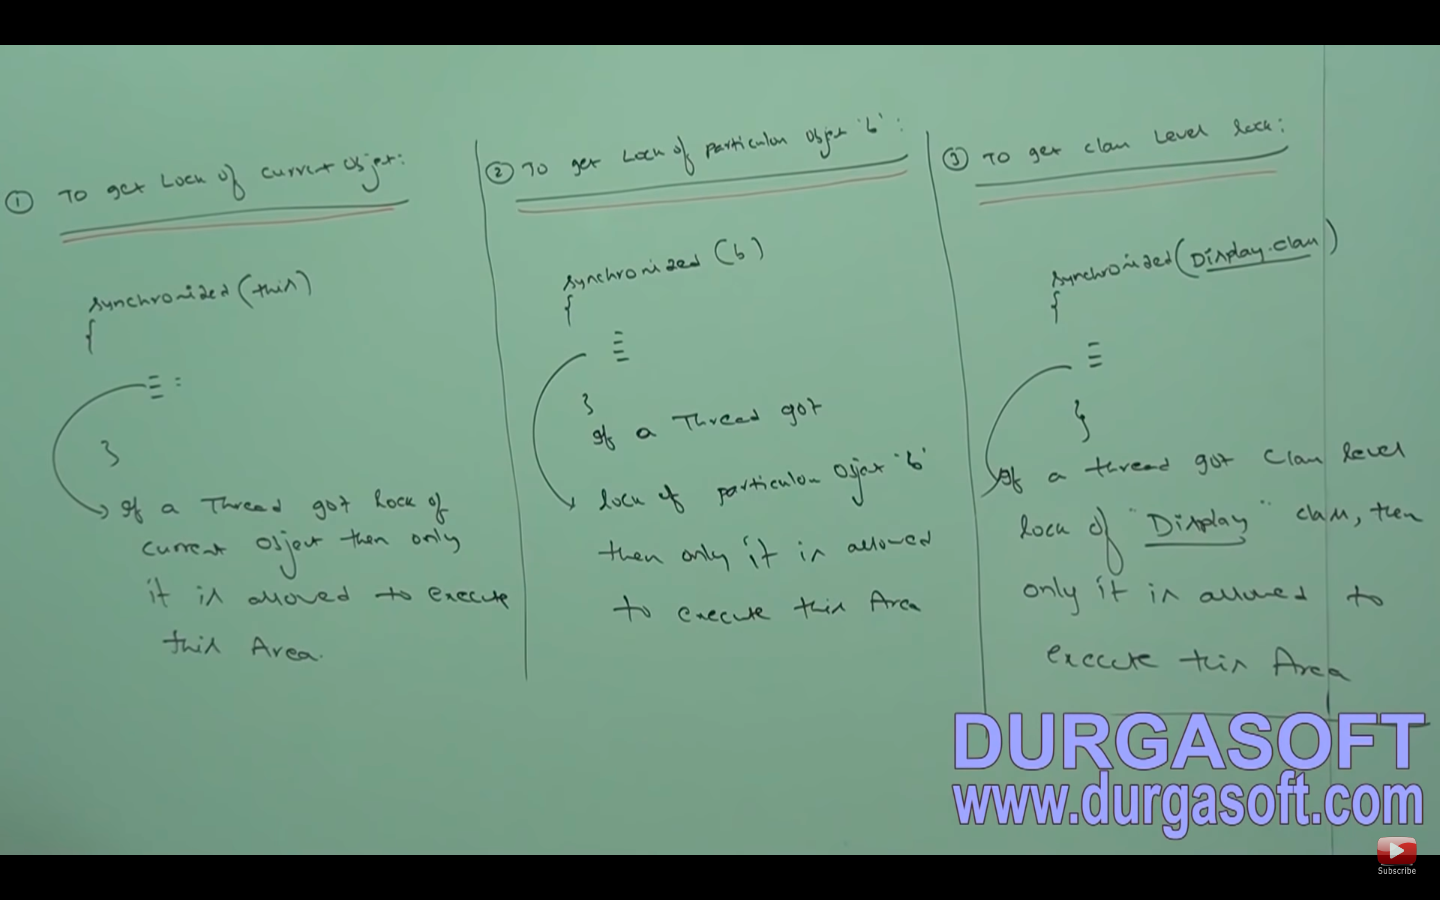 ① To get Lock of current object:
synchronized(this)
{
}
If a Thread got Lock of
current object then only
it is allowed to execute
this Area.
② To get Lock of particular object 'b':
synchronized (b)
{
}
If a Thread got
lock of particular object 'b'
then only it is allowed
to execute this Area
③ To get class Level lock:
synchronized(Display.class)
{
}
If a thread got class level
lock of "Display" class, then
only it is allowed to
execute this Area
DURGASOFT
www.durgasoft.com
Subscribe